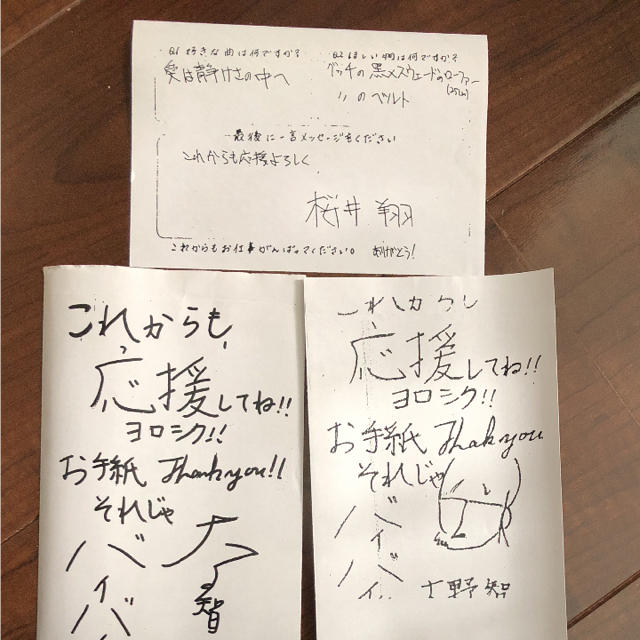 Q1 好きな曲は何ですか?
愛は静けさの中へ
Q2 ほしい物は何ですか?
グッチの黒×スウェードのローファー
〃のベルト
最後に一言メッセージをください
これからも応援よろしく
桜井 翔
これからもお仕事がんばってください。 ありがとう!
これからも、
応援してね!!
ヨロシク!!
お手紙 Thank you!!
それじゃ
バイ
バイ
大
智
これからも
応援してね!!
ヨロシク!!
お手紙 Thank you
それじゃ
バイ
バイ
大野智